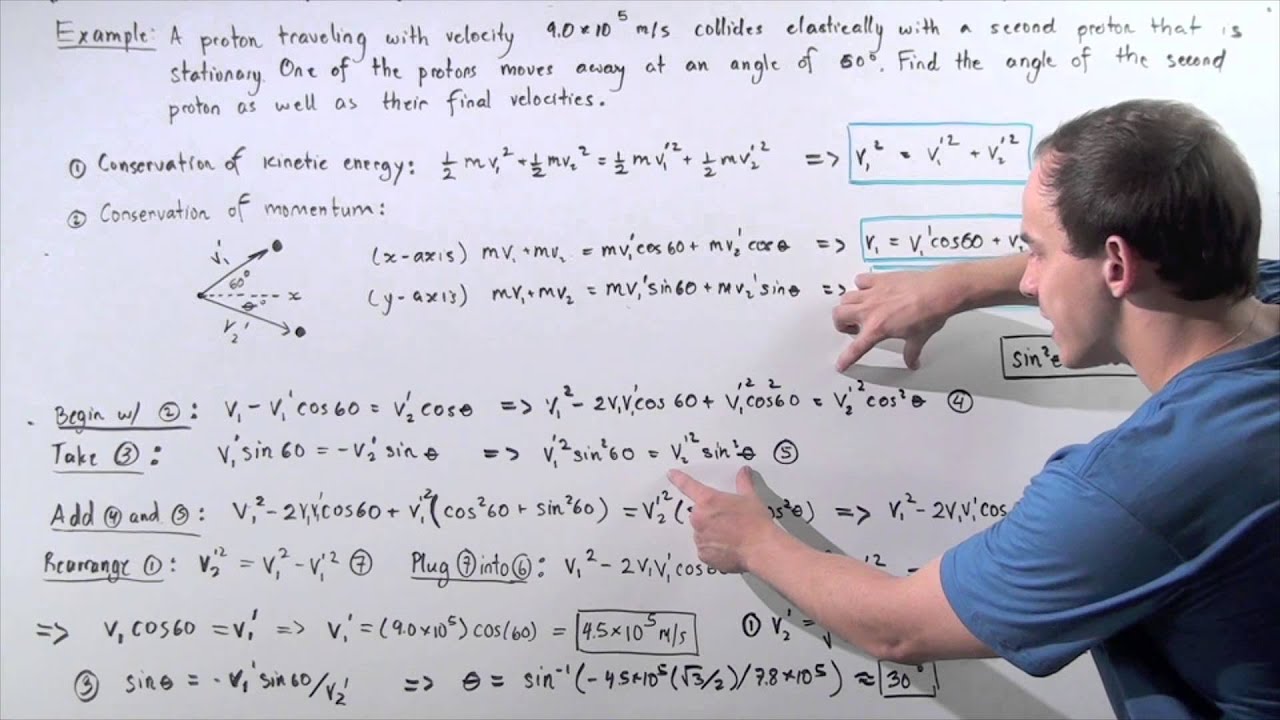 Example: A proton traveling with velocity 9.0×10⁵ m/s collides elastically with a second proton that is
stationary. One of the protons moves away at an angle of 60°. Find the angle of the second
proton as well as their final velocities.
① Conservation of kinetic energy: ½ mv₁² + ½ mv₂² = ½ mv₁'² + ½ mv₂'² => v₁² = v₁'² + v₂'²
② Conservation of momentum:
v₁' 60° x θ° v₂'
(x-axis) mv₁ + mv₂ = mv₁'cos60 + mv₂'cosθ => v₁ = v₁'cos60 +
(y-axis) mv₁ + mv₂ = mv₁'sin60 + mv₂'sinθ =>
sin²
Begin w/ ②: v₁ - v₁'cos60 = v₂'cosθ => v₁² - 2v₁v₁'cos60 + v₁'²cos²60 = v₂'²cos²θ ④
Take ③: v₁'sin60 = -v₂'sinθ => v₁'²sin²60 = v₂'²sin²θ ⑤
Add ④ and ⑤: v₁² - 2v₁v₁'cos60 + v₁'²(cos²60 + sin²60) = v₂'²( cos²θ) => v₁² - 2v₁v₁'cos
Rearrange ①: v₂'² = v₁² - v₁'² ⑦ Plug ⑦ into ⑥: v₁² - 2v₁v₁'cos
=> v₁cos60 = v₁' => v₁' = (9.0×10⁵)cos(60) = 4.5×10⁵ m/s ① v₂' =
③ sinθ = -v₁'sin60/v₂' => θ = sin⁻¹(-4.5×10⁵(√3/2)/7.8×10⁵) ≈ 30°